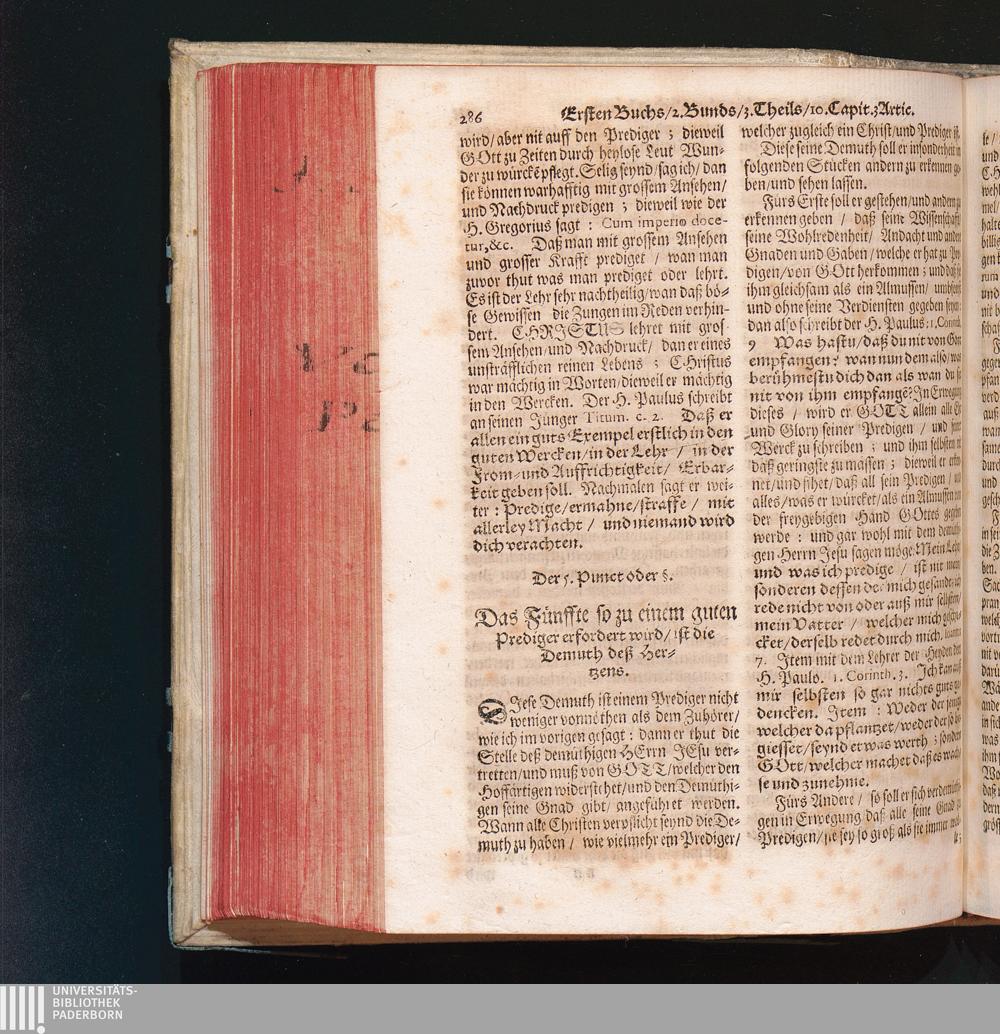 286
Ersten Buchs/2.Bunds/3.Theils/10.Capit.3Artic.
wird/aber nit auff den Prediger ; dieweil
GOtt zu Zeiten durch heylose Leut Wun-
der zu würckẽ pflegt. Selig seynd/sag ich/dan
sie können warhafftig mit grossem Ansehen/
und Nachdruck predigen ; dieweil wie der
H. Gregorius sagt : Cum imperio doce-
tur,&c. Daß man mit grossem Ansehen
und grosser Krafft prediget / wan man
zuvor thut was man prediget oder lehrt.
Es ist der Lehr sehr nachtheilig/wan daß bö-
se Gewissen die Zungen im Reden verhin-
dert. CHRISTUS lehret mit gros-
sem Ansehen/und Nachdruck/ dan er eines
unsträfflichen reinen Lebens ; CHristus
war mächtig in Worten/dieweil er mächtig
in den Wercken. Der H. Paulus schreibt
an seinen Jünger Titum. c. 2. Daß er
allen ein guts Exempel erstlich in den
guten Wercken/in der Lehr / in der
From- und Auffrichtigkeit/ Erbar-
keit geben soll. Nachmalen sagt er wei-
ter : Predige/ermahne/straffe / mit
allerley Macht / und niemand wird
dich verachten.
Der 5. Punct oder §.
Das Fünffte so zu einem guten
Prediger erfordert wird/ ist die
Demuth deß Her-
tzens.
DIese Demuth ist einem Prediger nicht
weniger vonnöthen als dem Zuhörer/
wie ich im vorigen gesagt : dann er thut die
Stelle deß demüthigen HErrn JEsu ver-
tretten/und muß von GOTT/welcher den
Hoffärtigen widerstehet/und den Demüthi-
gen seine Gnad gibt/ angeführet werden.
Wann alle Christen verpflicht seynd die De-
muth zu haben / wie vielmehr ein Prediger/
welcher zugleich ein Christ/und Prediger ist.
Diese seine Demuth soll er insonderheit in
folgenden Stücken andern zu erkennen ge-
ben/und sehen lassen.
Fürs Erste soll er gestehen/und andern zu
erkennen geben / daß seine Wissenschafft
seine Wohlredenheit/ Andacht und andere
Gnaden und Gaben/ welche er hat zu Pre-
digen/von GOtt herkommen ; und daß sie
ihm gleichsam als ein Almussen/ umbsonst
und ohne seine Verdiensten gegeben seyen:
dan also schreibt der H. Paulus: 1. Corinth.
9 Was hastu/daß du nit von Gott
empfangen? wan nun dem also/was
berühmestu dich dan als wan du sie
nit von ihm empfangẽ? In Erwegung
dieses / wird er GOTT allein alle Ehr
und Glory seiner Predigen / und seiner
Werck zu schreiben ; und ihm selbsten nit
daß geringste zu massen ; dieweil er erken-
net/und sihet/daß all sein Predigen / und
alles/was er würcket/als ein Almussen von
der freygebigen Hand GOttes gegeben
werde : und gar wohl mit dem demüthi-
gen Herrn Jesu sagen möge: Mein Lehr
und was ich predige / ist nit mein
sonderen dessen der mich gesandt: ich
rede nicht von oder auß mir selbsten/
mein Vatter / welcher mich geschi-
cket/derselb redet durch mich. Ioannis
7. Item mit dem Lehrer der Heyden dem
H. Paulo. 1. Corinth. 3. Ich kan auß
mir selbsten so gar nichts guts ge-
dencken. Item : Weder der jenige
welcher da pflantzet/weder der so be-
giesset/seynd etwas werth ; sondern
GOtt/welcher machet daß es wach-
se und zunehme.
Fürs Andere / so soll er sich verdemüthi-
gen in Erwegung daß alle seine Gnad zu
Predigen/sie sey so groß als sie immer wol-
UNIVERSITÄTS-
BIBLIOTHEK
PADERBORN